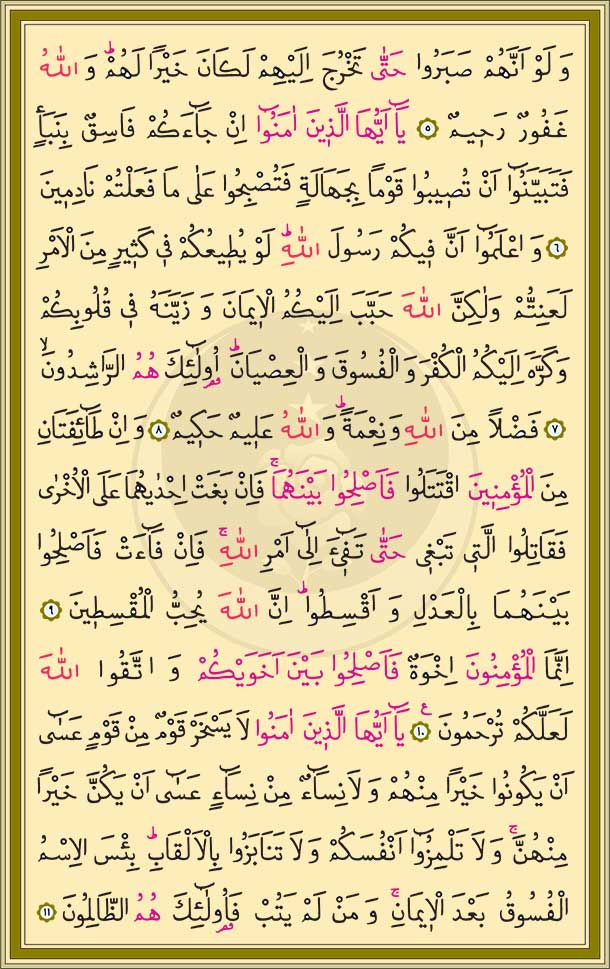 وَلَوْ اَنَّهُمْ صَبَرُوا حَتّٰى تَخْرُجَ اِلَيْهِمْ لَكَانَ خَيْرًا لَهُمْۜ وَاللّٰهُ
غَفُورٌ رَحٖيمٌ ﴿٥﴾ يَٓا اَيُّهَا الَّذٖينَ اٰمَنُٓوا اِنْ جَٓاءَكُمْ فَاسِقٌ بِنَبَأٍ
فَتَبَيَّنُٓوا اَنْ تُصٖيبُوا قَوْماً بِجَهَالَةٍ فَتُصْبِحُوا عَلٰى مَا فَعَلْتُمْ نَادِمٖينَ
﴿٦﴾ وَاعْلَمُٓوا اَنَّ فٖيكُمْ رَسُولَ اللّٰهِۜ لَوْ يُطٖيعُكُمْ فٖى كَثٖيرٍ مِنَ الْاَمْرِ
لَعَنِتُّمْ وَلٰكِنَّ اللّٰهَ حَبَّبَ اِلَيْكُمُ الْاٖيمَانَ وَزَيَّنَهُ فٖى قُلُوبِكُمْ
وَكَرَّهَ اِلَيْكُمُ الْكُفْرَ وَالْفُسُوقَ وَالْعِصْيَانَۜ اُو۬لٰٓئِكَ هُمُ الرَّاشِدُونَۙ
﴿٧﴾ فَضْلاً مِنَ اللّٰهِ وَنِعْمَةًۜ وَاللّٰهُ عَلٖيمٌ حَكٖيمٌ ﴿٨﴾ وَاِنْ طَٓائِفَتَانِ
مِنَ الْمُؤْمِنٖينَ اقْتَتَلُوا فَاَصْلِحُوا بَيْنَهُمَاۚ فَاِنْ بَغَتْ اِحْدٰيهُمَا عَلَى الْاُخْرٰى
فَقَاتِلُوا الَّتٖى تَبْغٖى حَتّٰى تَفٖٓىءَ اِلٰٓى اَمْرِ اللّٰهِۚ فَاِنْ فَٓاءَتْ فَاَصْلِحُوا
بَيْنَهُمَا بِالْعَدْلِ وَاَقْسِطُواۜ اِنَّ اللّٰهَ يُحِبُّ الْمُقْسِطٖينَ ﴿٩﴾
اِنَّمَا الْمُؤْمِنُونَ اِخْوَةٌ فَاَصْلِحُوا بَيْنَ اَخَوَيْكُمْ وَاتَّقُوا اللّٰهَ
لَعَلَّكُمْ تُرْحَمُونَ ﴿١٠﴾ ع يَٓا اَيُّهَا الَّذٖينَ اٰمَنُوا لَا يَسْخَرْ قَوْمٌ مِنْ قَوْمٍ عَسٰٓى
اَنْ يَكُونُوا خَيْرًا مِنْهُمْ وَلَا نِسَٓاءٌ مِنْ نِسَٓاءٍ عَسٰٓى اَنْ يَكُنَّ خَيْرًا
مِنْهُنَّۚ وَلَا تَلْمِزُٓوا اَنْفُسَكُمْ وَلَا تَنَابَزُوا بِالْاَلْقَابِۜ بِئْسَ الِاسْمُ
الْفُسُوقُ بَعْدَ الْاٖيمَانِۚ وَمَنْ لَمْ يَتُبْ فَاُو۬لٰٓئِكَ هُمُ الظَّالِمُونَ ﴿١١﴾